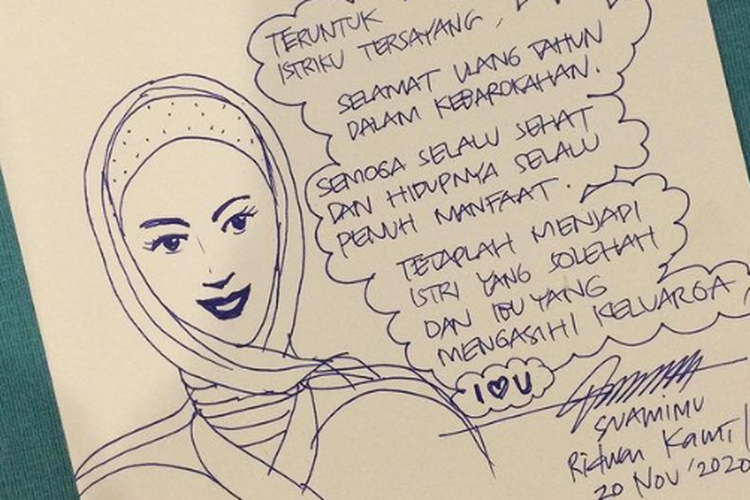 TERUNTUK
ISTRIKU TERSAYANG,
SELAMAT ULANG TAHUN
DALAM KEBAROKAHAN.
SEMOGA SELALU SEHAT
DAN HIDUPNYA SELALU
PENUH MANFAAT.
TETAPLAH MENJADI
ISTRI YANG SOLEHAH
DAN IBU YANG
MENGASIHI KELUARGA
I ♥ U
SUAMIMU
Ridwan Kamil
20 NOV '2020